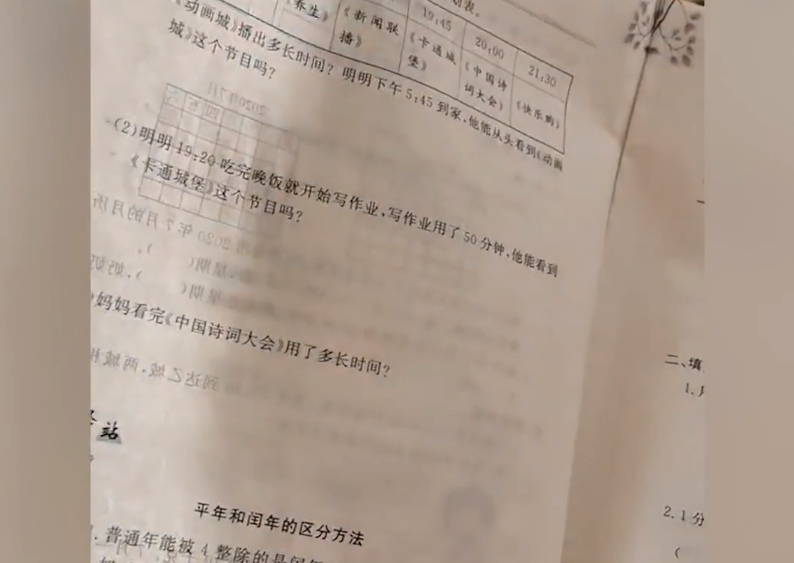 划表。
19:45 20:00 21:30
养生》 《新闻联播》 《卡通城堡》 《中国诗词大会》 《快乐购》
《动画城》播出多长时间?明明下午5:45到家,他能从头看到《动画
城》这个节目吗?
(2)明明19:20吃完晚饭就开始写作业,写作业用了50分钟,他能看到
《卡通城堡》这个节目吗?
妈妈看完《中国诗词大会》用了多长时间?
站
平年和闰年的区分方法
普通年能被4整除的是闰年
二、填
1.
2.1分
(